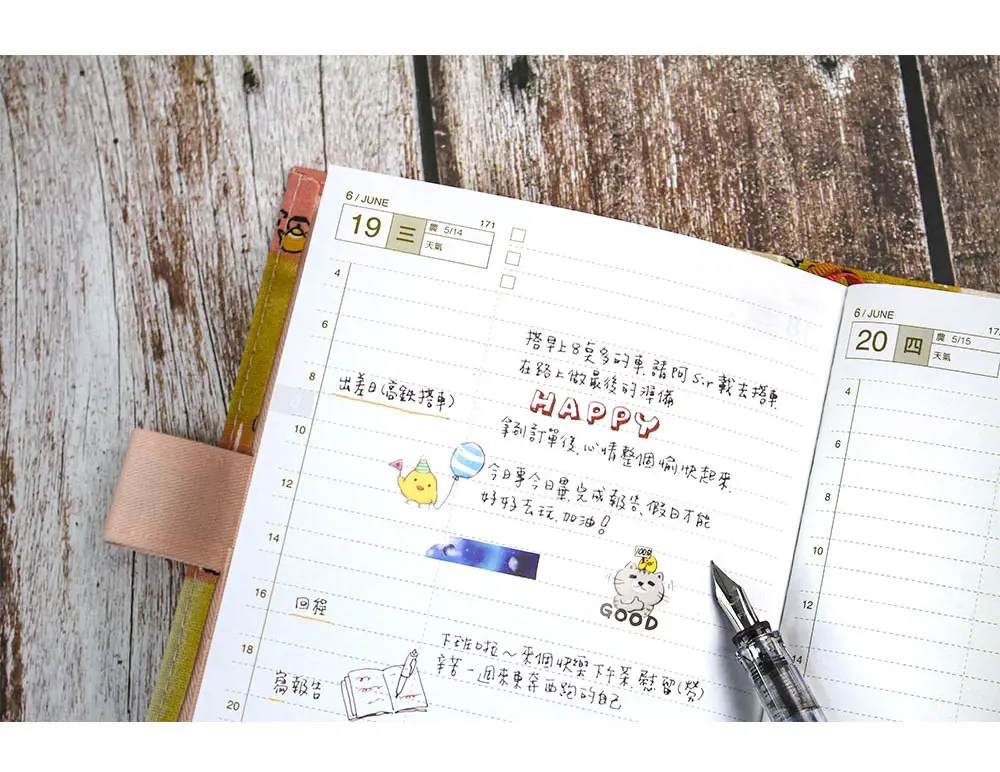 6 / JUNE
171
19 三 農 5/14
天氣
4
6
8
出差日(高鐵搭車)
10
12
14
16
回程
18
寫報告
20
搭早上8點多的車,請阿Sir載去搭車.
在路上做最後的準備
HAPPY
拿到訂單後,心情整個愉快起來.
今日事今日畢,完成報告,假日才能
好好去玩,加油!
100分
GOOD
下班啦~來個快樂下午茶慰留(勞)
辛苦一週來東奔西跑的自己
6 / JUNE
20 四 農 5/15
天氣
4
6
8
10
12
14